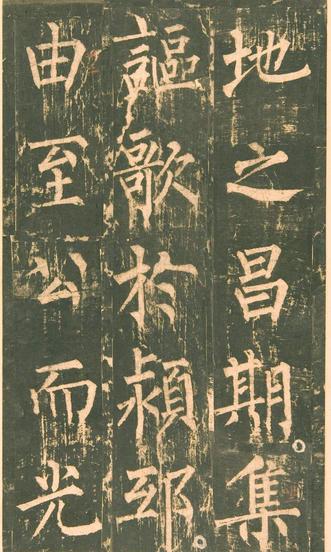 地之昌期集
謳歌於潁邸
由至公而光